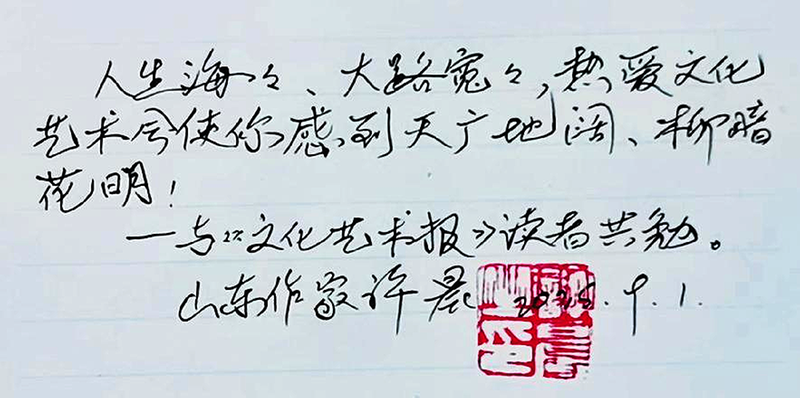 人生海々、大路宽々,热爱文化
艺术会使你感到天广地阔、柳暗
花明!
—与《文化艺术报》读者共勉。
山东作家许晨 2025.9.1.